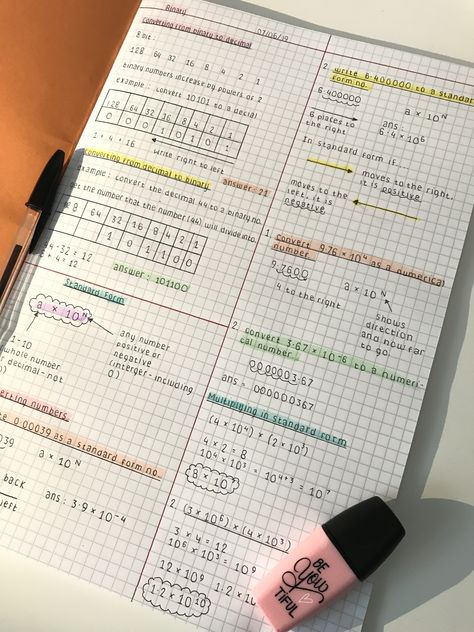 Binary
07/06/19
Converting from binary to decimal
8 Bit:
128 64 32 16 8 4 2 1
binary numbers increase by powers of 2
example: convert 10101 to a decimal
128 64 32 16 8 4 2 1
0 0 0 1 0 1 0 1
1 + 4 + 16
write right to left
answer: 21
Converting from decimal to binary
Example: convert the decimal 44 to a binary no.
the number that the number (44) will divide into.
64 32 16 8 4 2 1
1 0 1 1 0 0
44-32 = 12
8 + 4 = 12
answer: 101100
Standard Form
a × 10ᴺ
1-10
whole number
decimal - not
0)
any number
positive or
negative
(interger - including
0)
erting numbers
0.00039 as a standard form no.
039
a × 10ᴺ
back
left
ans: 3.9 × 10⁻⁴
2. write 6.400000 to a standard
form no.
6.400000
a × 10ᴺ
6 places to
the right
ans:
6.4 × 10⁶
In standard form if...
moves to the right,
it is positive
moves to the
left, it is
negative
1. Convert 9.76 × 10⁴ as a numerical
number
9.7600
a × 10ᴺ
4 to the right
shows
direction
and how far
to go!
2. convert 3.67 × 10⁻⁶ to a numeri-
cal number.
0000003.67
ans = 0.00000367
Multiplying in standard form
(4 × 10⁴) × (2 × 10³)
4 × 2 = 8
10⁴ × 10³ = 10⁴⁺³ = 10⁷
8 × 10⁷
2. (3 × 10⁶) × (4 × 10³)
3 × 4 = 12
10⁶ × 10³ = 10⁹
12 × 10⁹
1.2 × 10¹⁰
BE
YOU
TIFUL